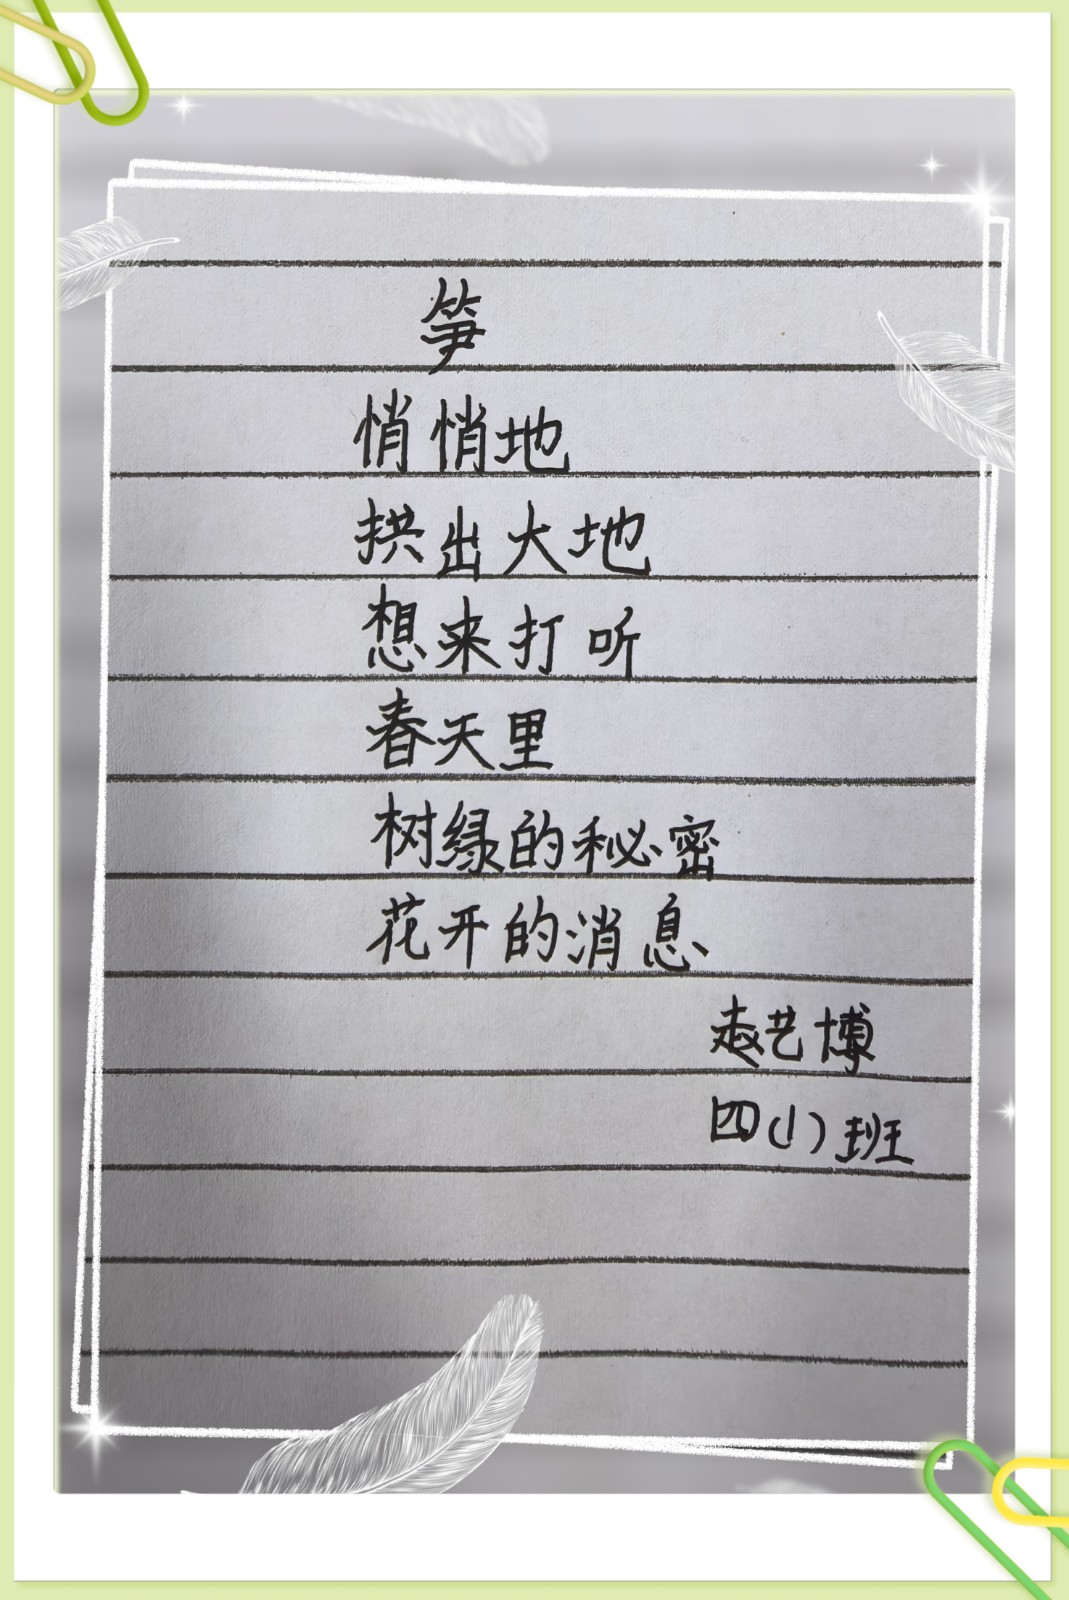 笋
悄悄地
拱出大地
想来打听
春天里
树绿的秘密
花开的消息
赵艺博
四(1)班